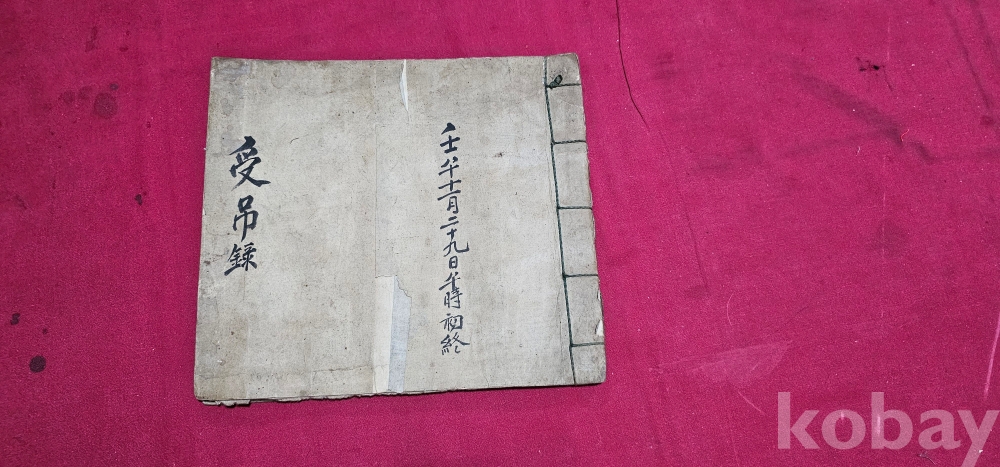 壬午十一月二十九日午時初終
受吊錄
kobay